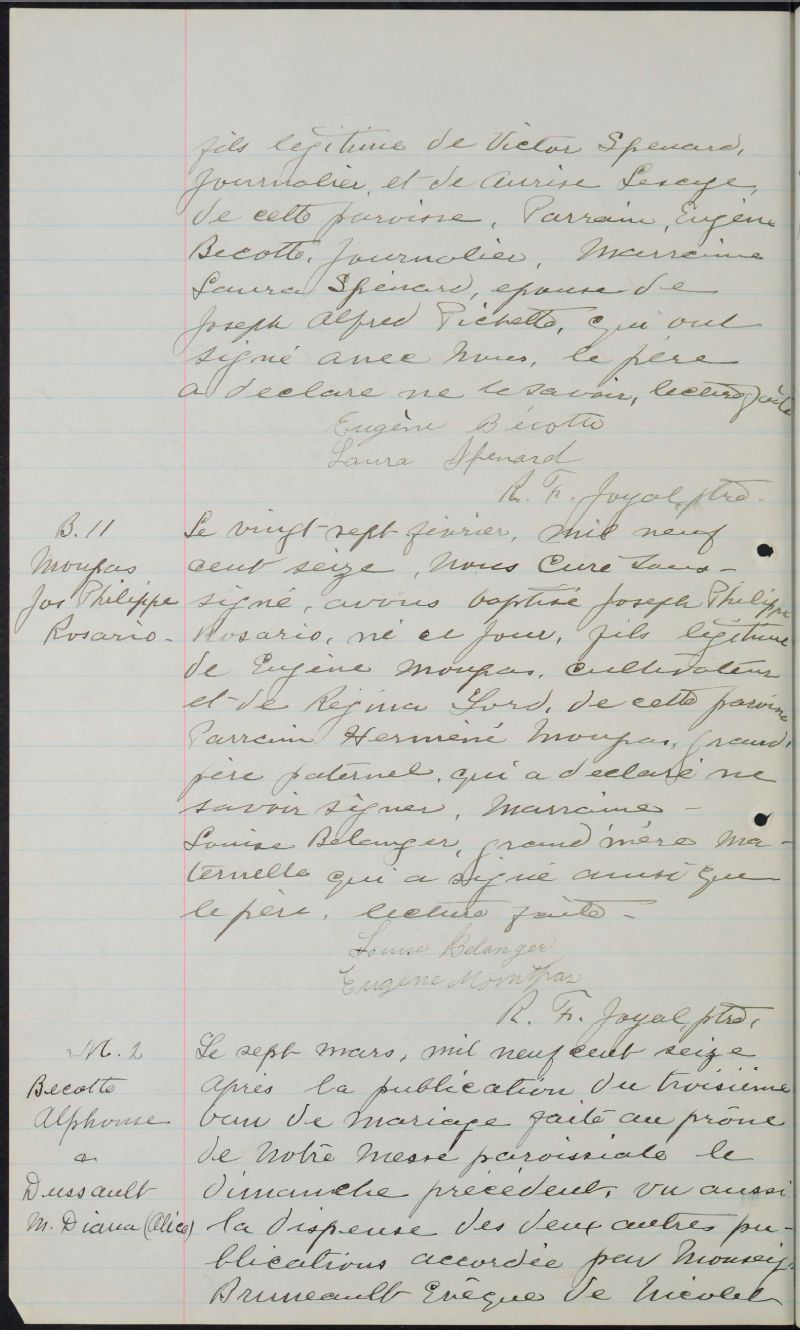 fils légitime de Victor Spenard,
journalier, et de Aurise Lesage,
de cette paroisse, Parrain, Eugène
Becotte, journalier, Marraine
Laura Spénard, epouse de
Joseph Alfred Pichette, qui ont
signé avec Nous, le père
a declare ne le savoir, lecture faite
Eugène Bécotte
Laura Spenard
R. Fr. Joyal, ptre.
B. 11
Moupas
Jos Philippe
Rosario -
Le vingt-sept février, mil neuf
cent seize, Nous Curé sous-
signé, avons baptisé Joseph Philippe
Rosario, né ce jour, fils légitime
de Eugène Moupas, cultivateur
et de Régina Lord, de cette paroisse
Parrain Herméné Moupas, grand,
père paternel, qui a declaré ne
savoir signer, Marraine -
Louise Belanger, grand'mère ma-
ternelle qui a signé ainsi que
le père, lecture faite -
Louise Belanger
Eugene Montpas
R. Fr. Joyal, ptre,
M. 2
Becotte
Alphonse
&
Dussault
M. Diana (Alice)
Le sept mars, mil neuf cent seize
après la publication du troisième
ban de mariage faite au prône
de Notre Messe paroissiale le
dimanche précédent, vu aussi
la dispense des deux autres pu-
blications accordée par Monseig.
Bruneault Evêque de Nicolet